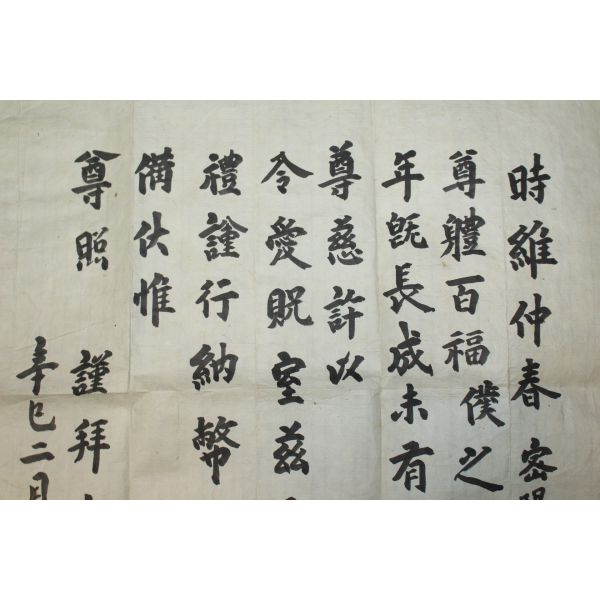 時維仲春
尊體百福僕之
年旣長成未有
尊慈許以
令愛貺室玆
禮謹行納幣
備伏惟
尊照 謹拜
辛巳二月